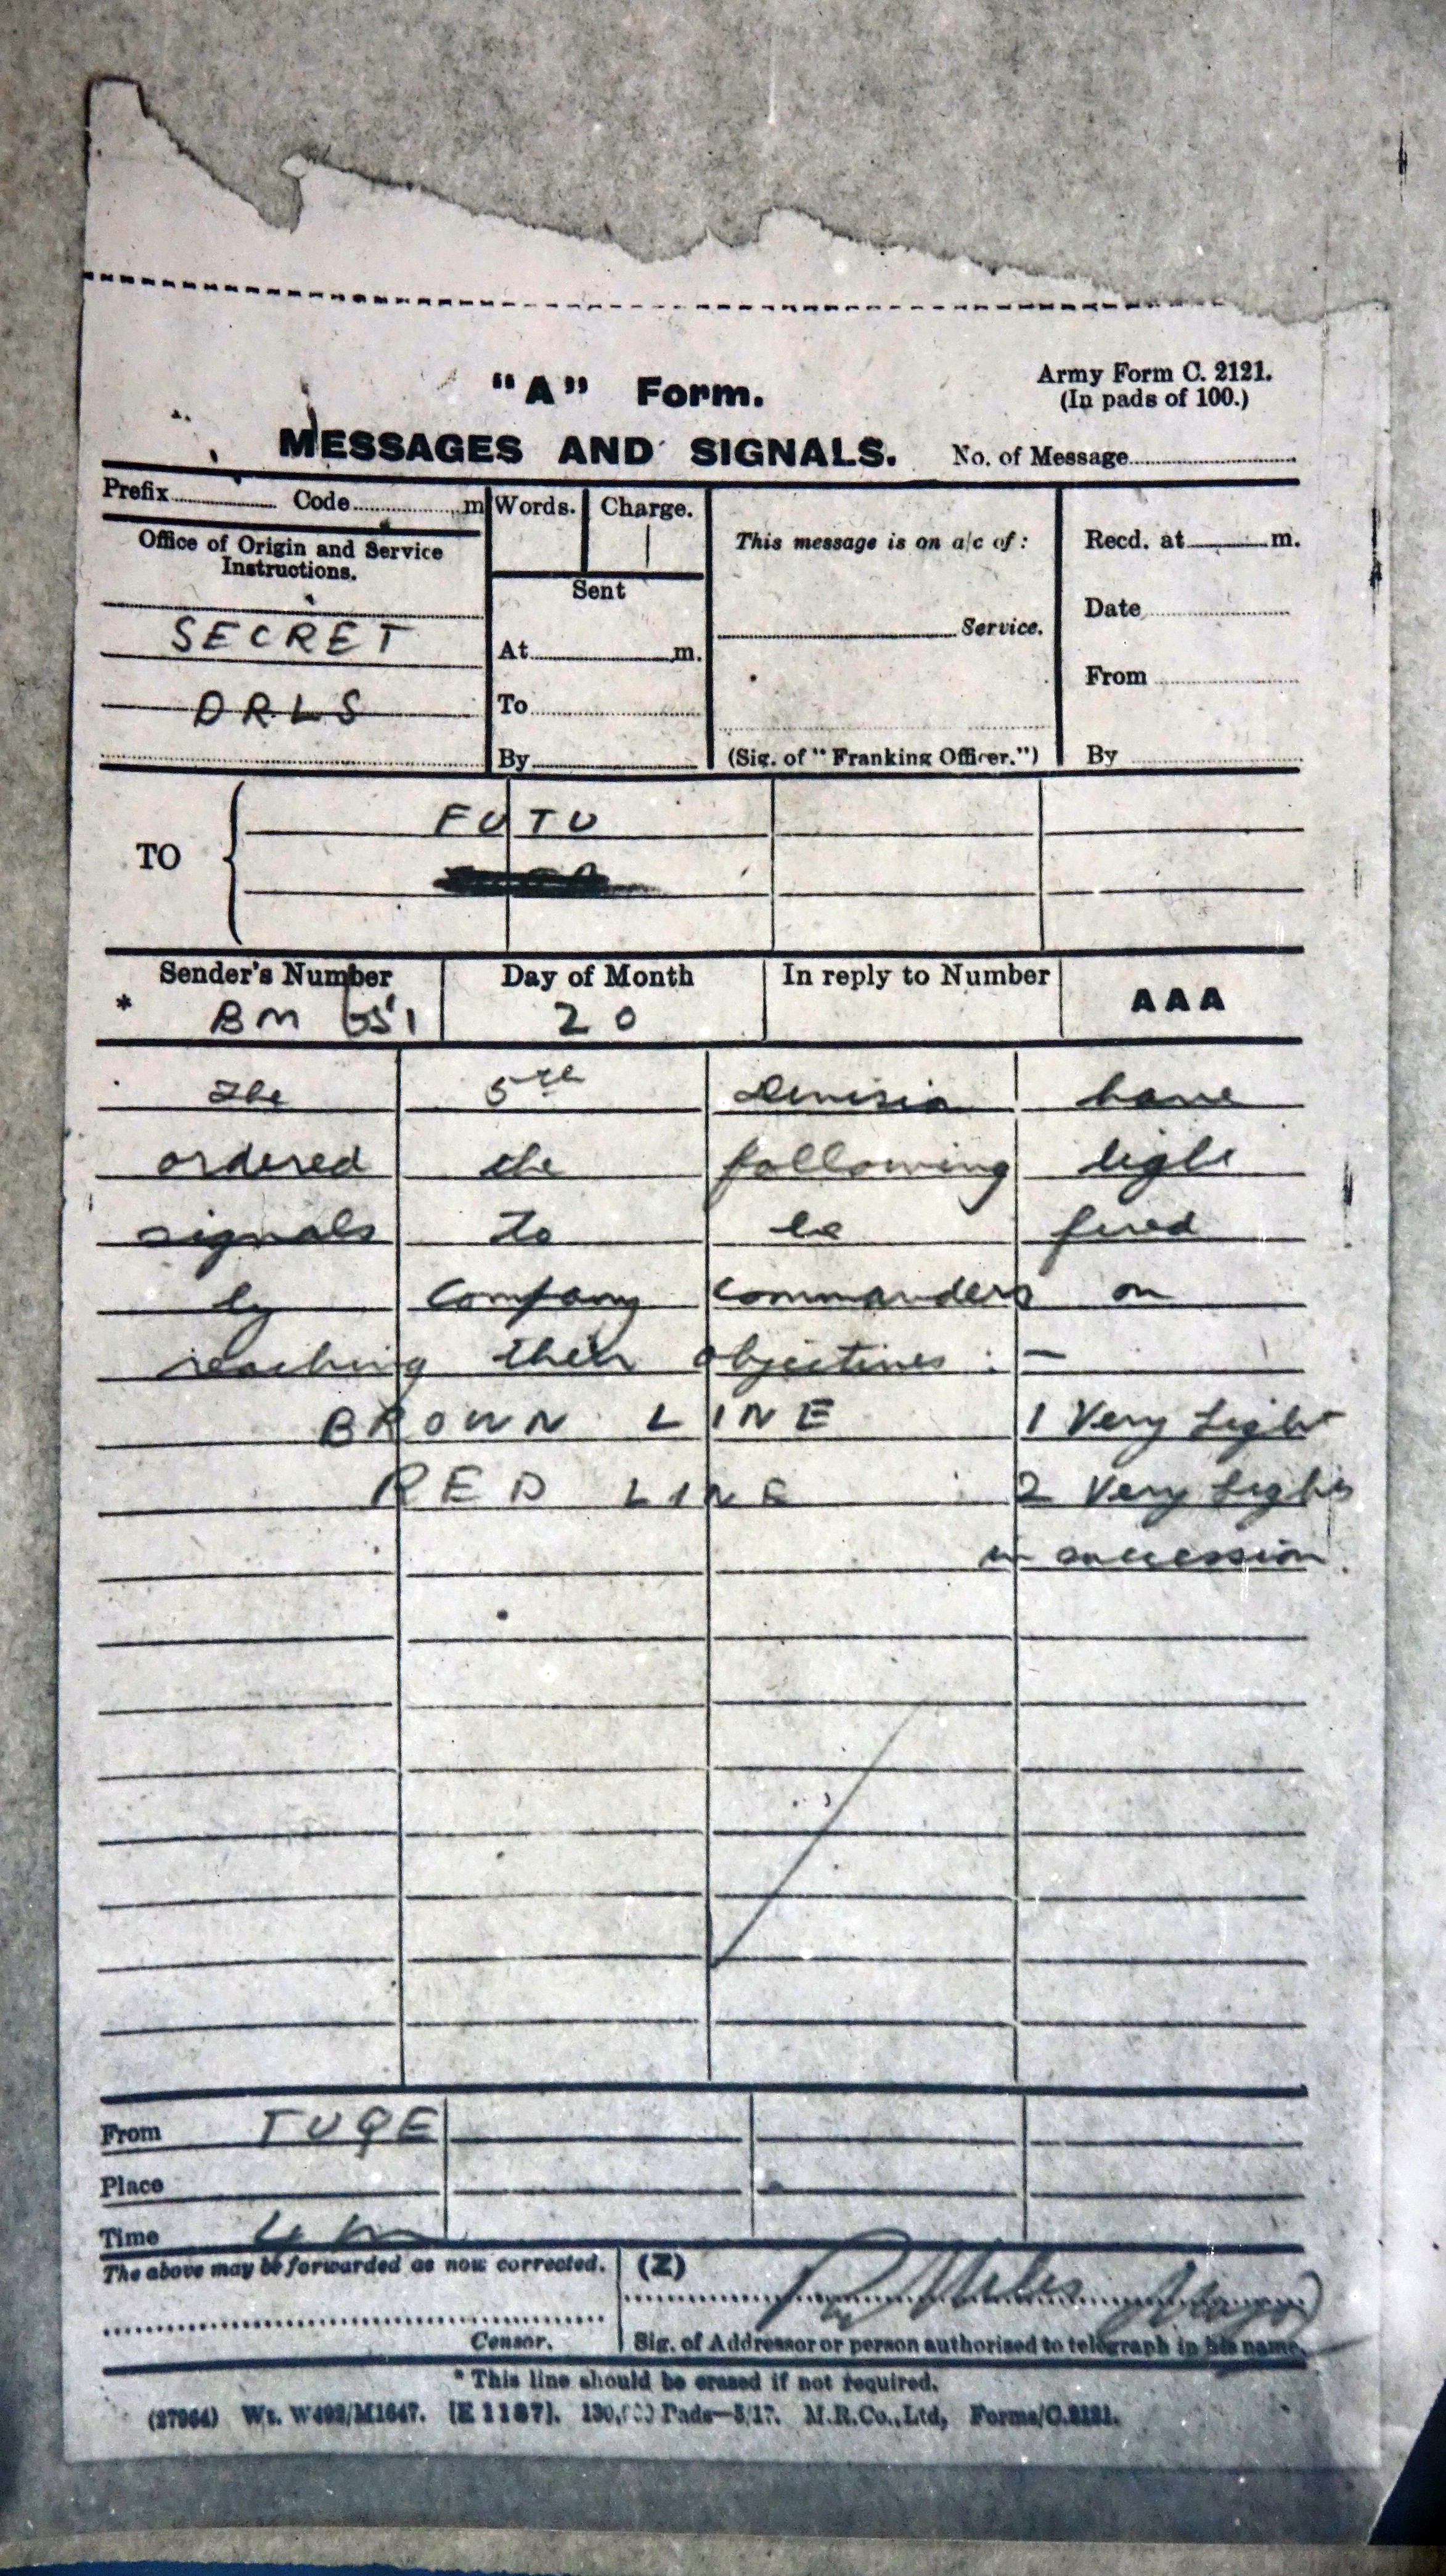 "A" Form.
Army Form C. 2121.
(In pads of 100.)
MESSAGES AND SIGNALS.
No. of Message
Prefix Code m
Words. Charge.
This message is on a/c of:
Recd. at m.
Office of Origin and Service
Instructions.
Sent
Date
SECRET
Service.
At m.
From
DRLS
To
By
(Sig. of "Franking Officer.")
By
TO
FUTU
Sender's Number Day of Month In reply to Number
AAA
* BM 20
The 5th Division have
ordered the following light
signals to be fired
by Company Commanders on
reaching their objectives :-
BROWN LINE 1 Very Light
RED LINE 2 Very Lights
in succession.
From TUQE
Place
Time
The above may be forwarded as now corrected.
(Z)
Miles Major
Censor.
Sig. of Addressor or person authorised to telegraph in his name.
* This line should be erased if not required.
(27964) Wt. W492/M1647. [E 1187]. 130,000 Pads—5/17. M.R.Co.,Ltd, Forms/C.2121.